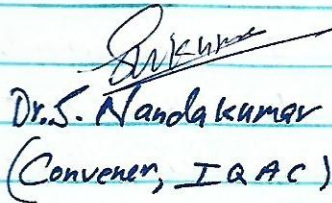 Dr. S. Nandakumar
(Convener, IQAC)